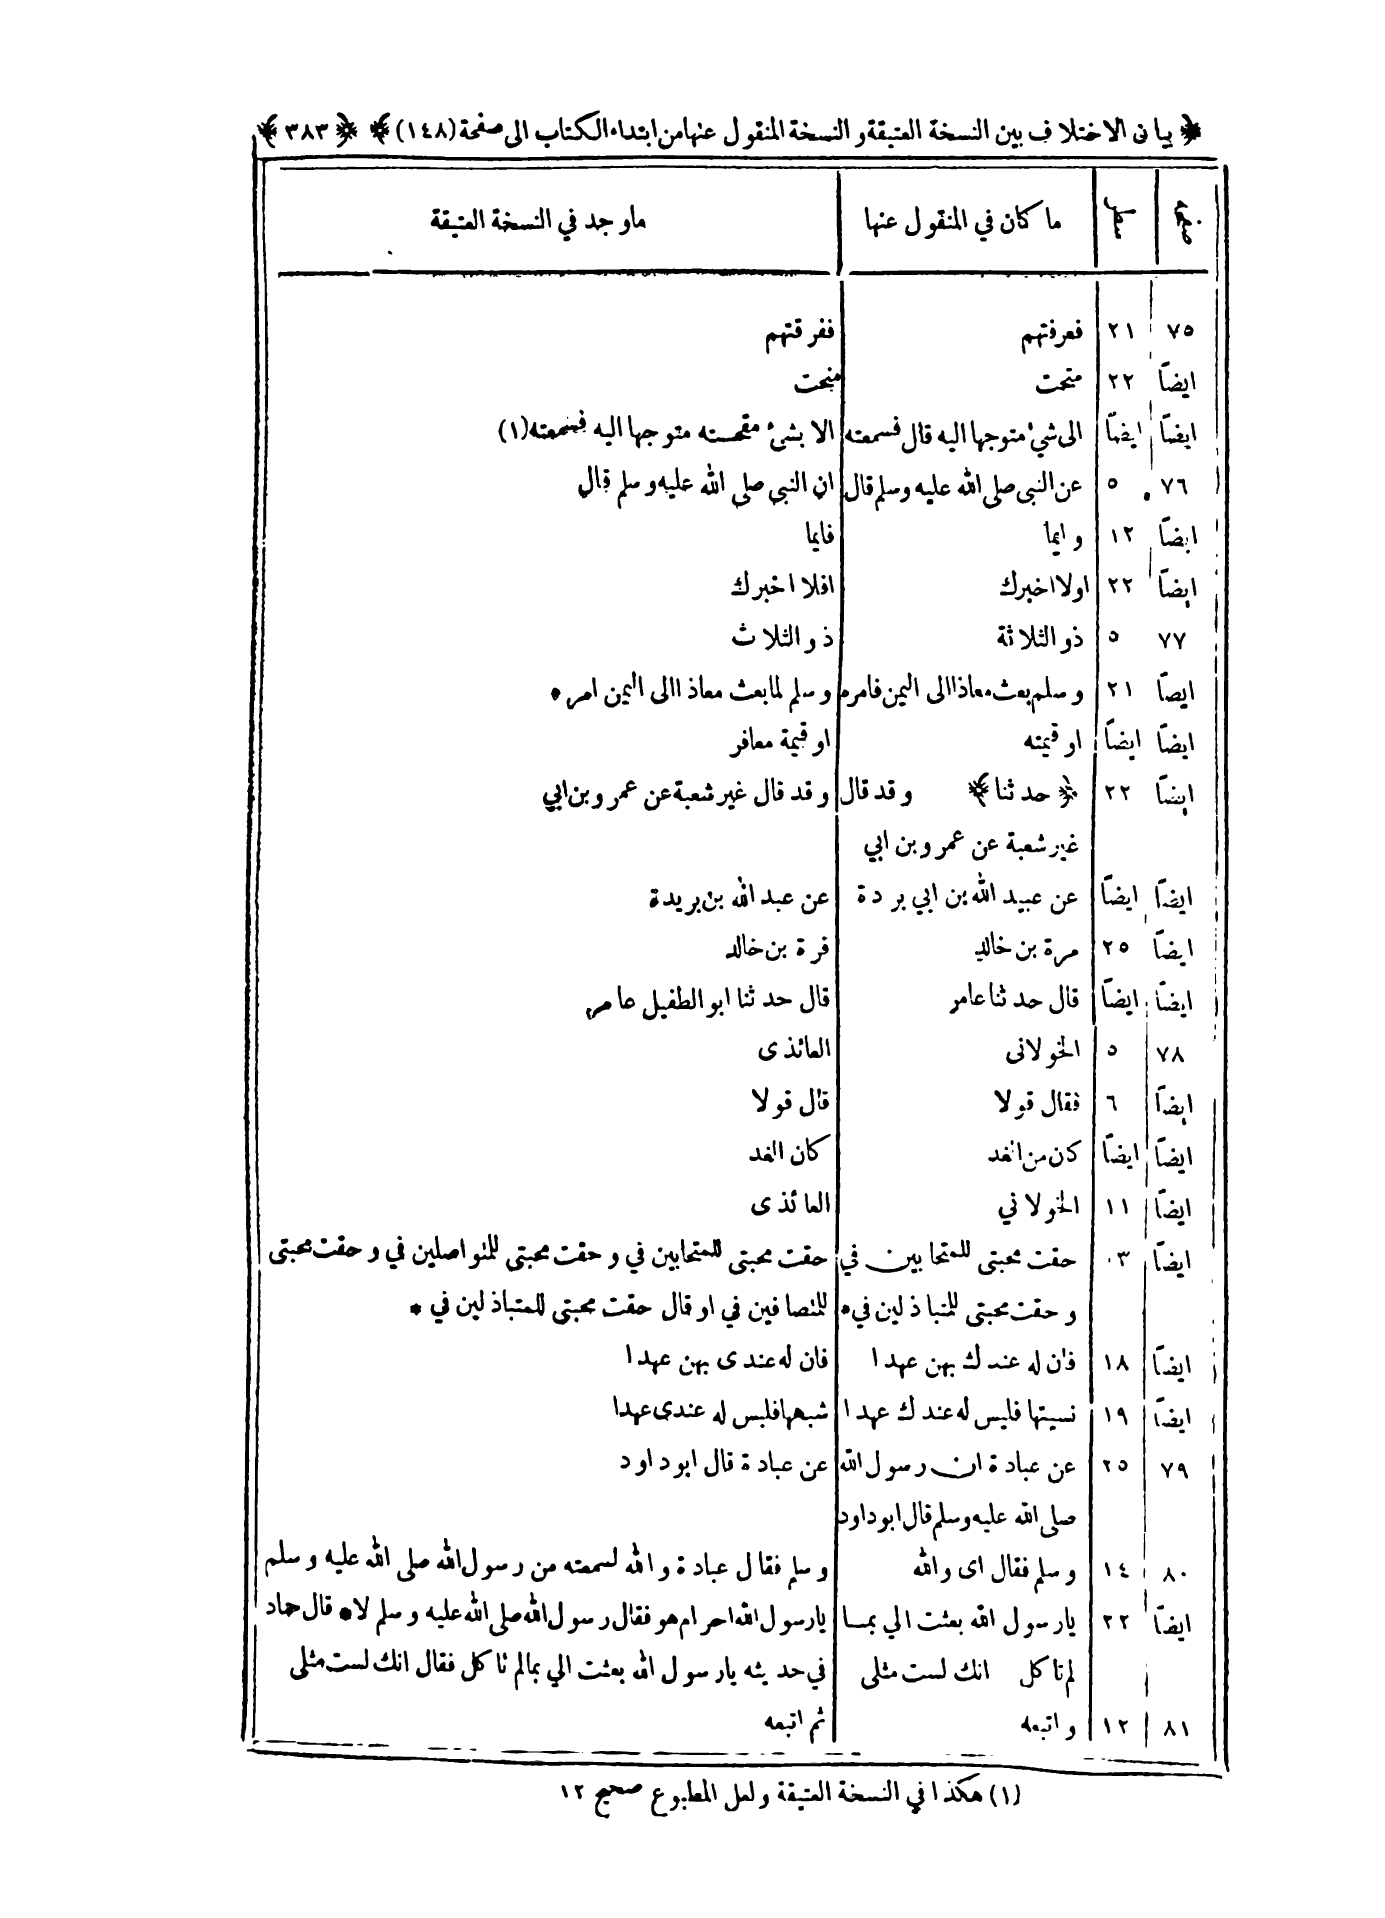 ﴿ بيان الاختلاف بين النسخة العتيقة و النسخة المنقول عنها من ابتداء الكتاب الى صفحة (١٤٨) ﴾ ﴿ ٣٨٣ ﴾
صفحه سطر ما كان في المنقول عنها ماوجد في النسخة العتيقة
٧٥ ٢١ فعرفتهم ففرقتهم
ايضاً ٢٢ متحت منحت
ايضاً ايضاً الى شئ متوجها اليه قال فسمعته الا بشیٔ مقحسته متوجها اليه فسمعته (١)
٧٦ ٥ عن النبى صلى الله عليه وسلم قال ان النبي صلى الله عليه وسلم قال
ايضاً ١٢ و ايما فايما
ايضاً ٢٢ اولا اخبرك افلا اخبرك
٧٧ ٥ ذو الثلاثة ذو الثلاث
ايضاً ٢١ و سلم بعث معاذا الى اليمن فامره و سلم لما بعث معاذا الى اليمن امره
ايضاً ايضاً او قيمته او قيمة معافر
ايضاً ٢٢ ﴿ حدثنا ﴾ وقد قال وقد قال غير شعبة عن عمرو بن ابي
غير شعبة عن عمرو بن ابي
ايضاً ايضاً عن عبيد الله بن ابي بردة عن عبد الله بن بريدة
ايضاً ٢٥ مرة بن خالد قرة بن خالد
ايضاً ايضاً قال حدثنا عامر قال حدثنا ابو الطفيل عامر
٧٨ ٥ الخولانى العائذى
ايضاً ٦ فقال قولا قال قولا
ايضاً ايضاً كان من الغد كان الغد
ايضاً ١١ الخولاني العائذى
ايضاً ٠٣ حقت محبتى للمتحابين في حقت محبتى للمتحابين في و حقت محبتى للمتواصلين في و حقت محبتى
و حقت محبتى للمتباذلين في * للمتصافين في او قال حقت محبتى للمتباذلين في *
ايضاً ١٨ فان له عندك بهن عهدا فان له عندى بهن عهدا
ايضاً ١٩ نسيتها فليس له عندك عهدا شبهها فليس له عندى عهدا
٧٩ ٢٥ عن عبادة ان رسول الله عن عبادة قال ابو داود
صلى الله عليه وسلم قال ابوداود
٨٠ ١٤ و سلم فقال اى والله و سلم فقال عبادة والله لسمعته من رسول الله صلى الله عليه و سلم
ايضاً ٢٢ يا رسول الله بعثت الي بما يا رسول الله احرام هو فقال رسول الله صلى الله عليه و سلم لا * قال حماد
لم تا كل انك لست مثلى في حديثه يا رسول الله بعثت الي بمالم تا كل فقال انك لست مثلى
٨١ ١٢ و اتبعه ثم اتبعه
(١) هكذا في النسخة العتيقة و لعل المطبوع صحيح ١٢